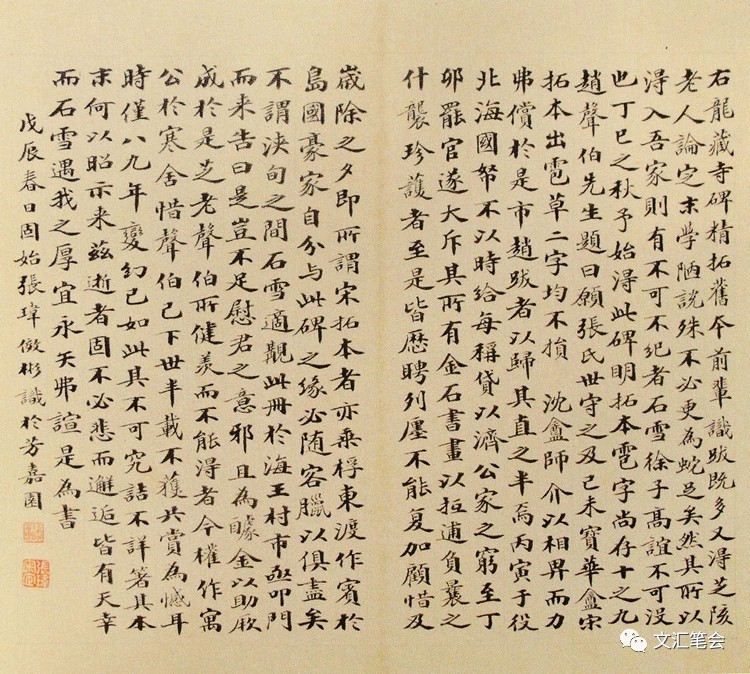 右龍藏寺碑精拓舊本前輩識跋既多又得芝陔
老人論定末學陋說殊不必更為蛇足矣然其所以
淂入吾家則有不可不紀者石雪徐子高誼不可沒
也丁巳之秋予始淂此碑明拓本雹字尚存十之九
趙聲伯先生題曰願張氏世守之及己未寶華盦宋
拓本出雹草二字均不損 沈盦師介以相畀而力
弗償於是市趙跋者以歸其直之半焉丙寅于役
北海國帑不以時給每稱貸以濟公家之窮至丁
卯罷官遂大斥其所有金石書畫以拉逋負曩之
什襲珍護者至是皆歷聘列廛不能复加顧惜及
歲除之夕即所謂宋拓本者亦乘桴東渡作賓於
島國豪家自分与此碑之緣必随客臘以俱盡矣
不謂浹旬之間石雪適觀此冊於海王村市亟叩門
而来告曰是豈不足慰君之意邪且為醵金以助厥
成於是芝老聲伯所健羡而不能淂者今權作寓
公於寒舍惜聲伯已下世半載不獲共賞為憾耳
時僅八九年變幻已如此其不可究詰不詳箸其本
末何以昭示来茲逝者固不必悲而邂逅皆有天幸
而石雪遇我之厚宜永矢弗諠是為書
戊辰春日固始張瑋傚彬識於芳嘉園
文汇笔会